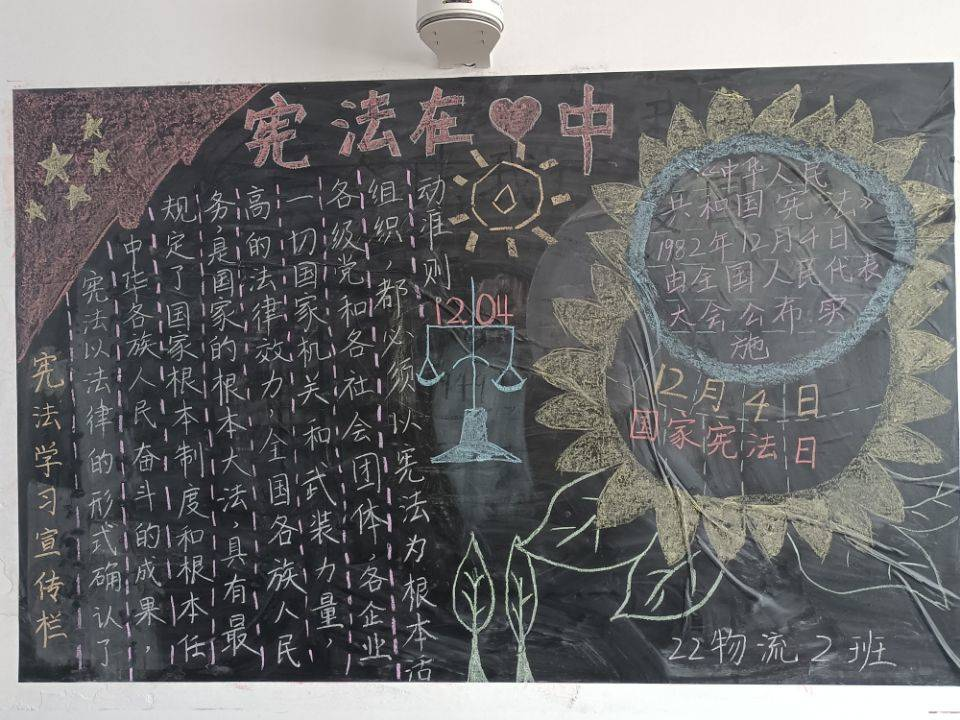 宪法在中
宪法学习宣传栏
宪法以法律的形式确认了
中华各族人民奋斗的成果，
规定了国家根本制度和根本任
务，是国家的根本大法，具有最
高的法律效力，全国各族人民
一切国家机关和武装力量，
各级党和各社会团体，各企业
组织，都必须以宪法为根本活
动准则
12.04
《中华人民
共和国宪法》
1982年12月4日
由全国人民代表
大会公布实
施
12月4日
国家宪法日
22物流2班